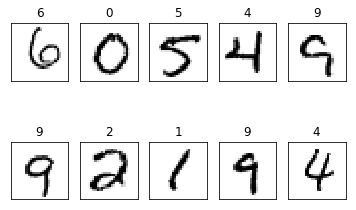 6 0 5 4 9
6 0 5 4 9
9 2 1 9 4
9 2 1 9 4